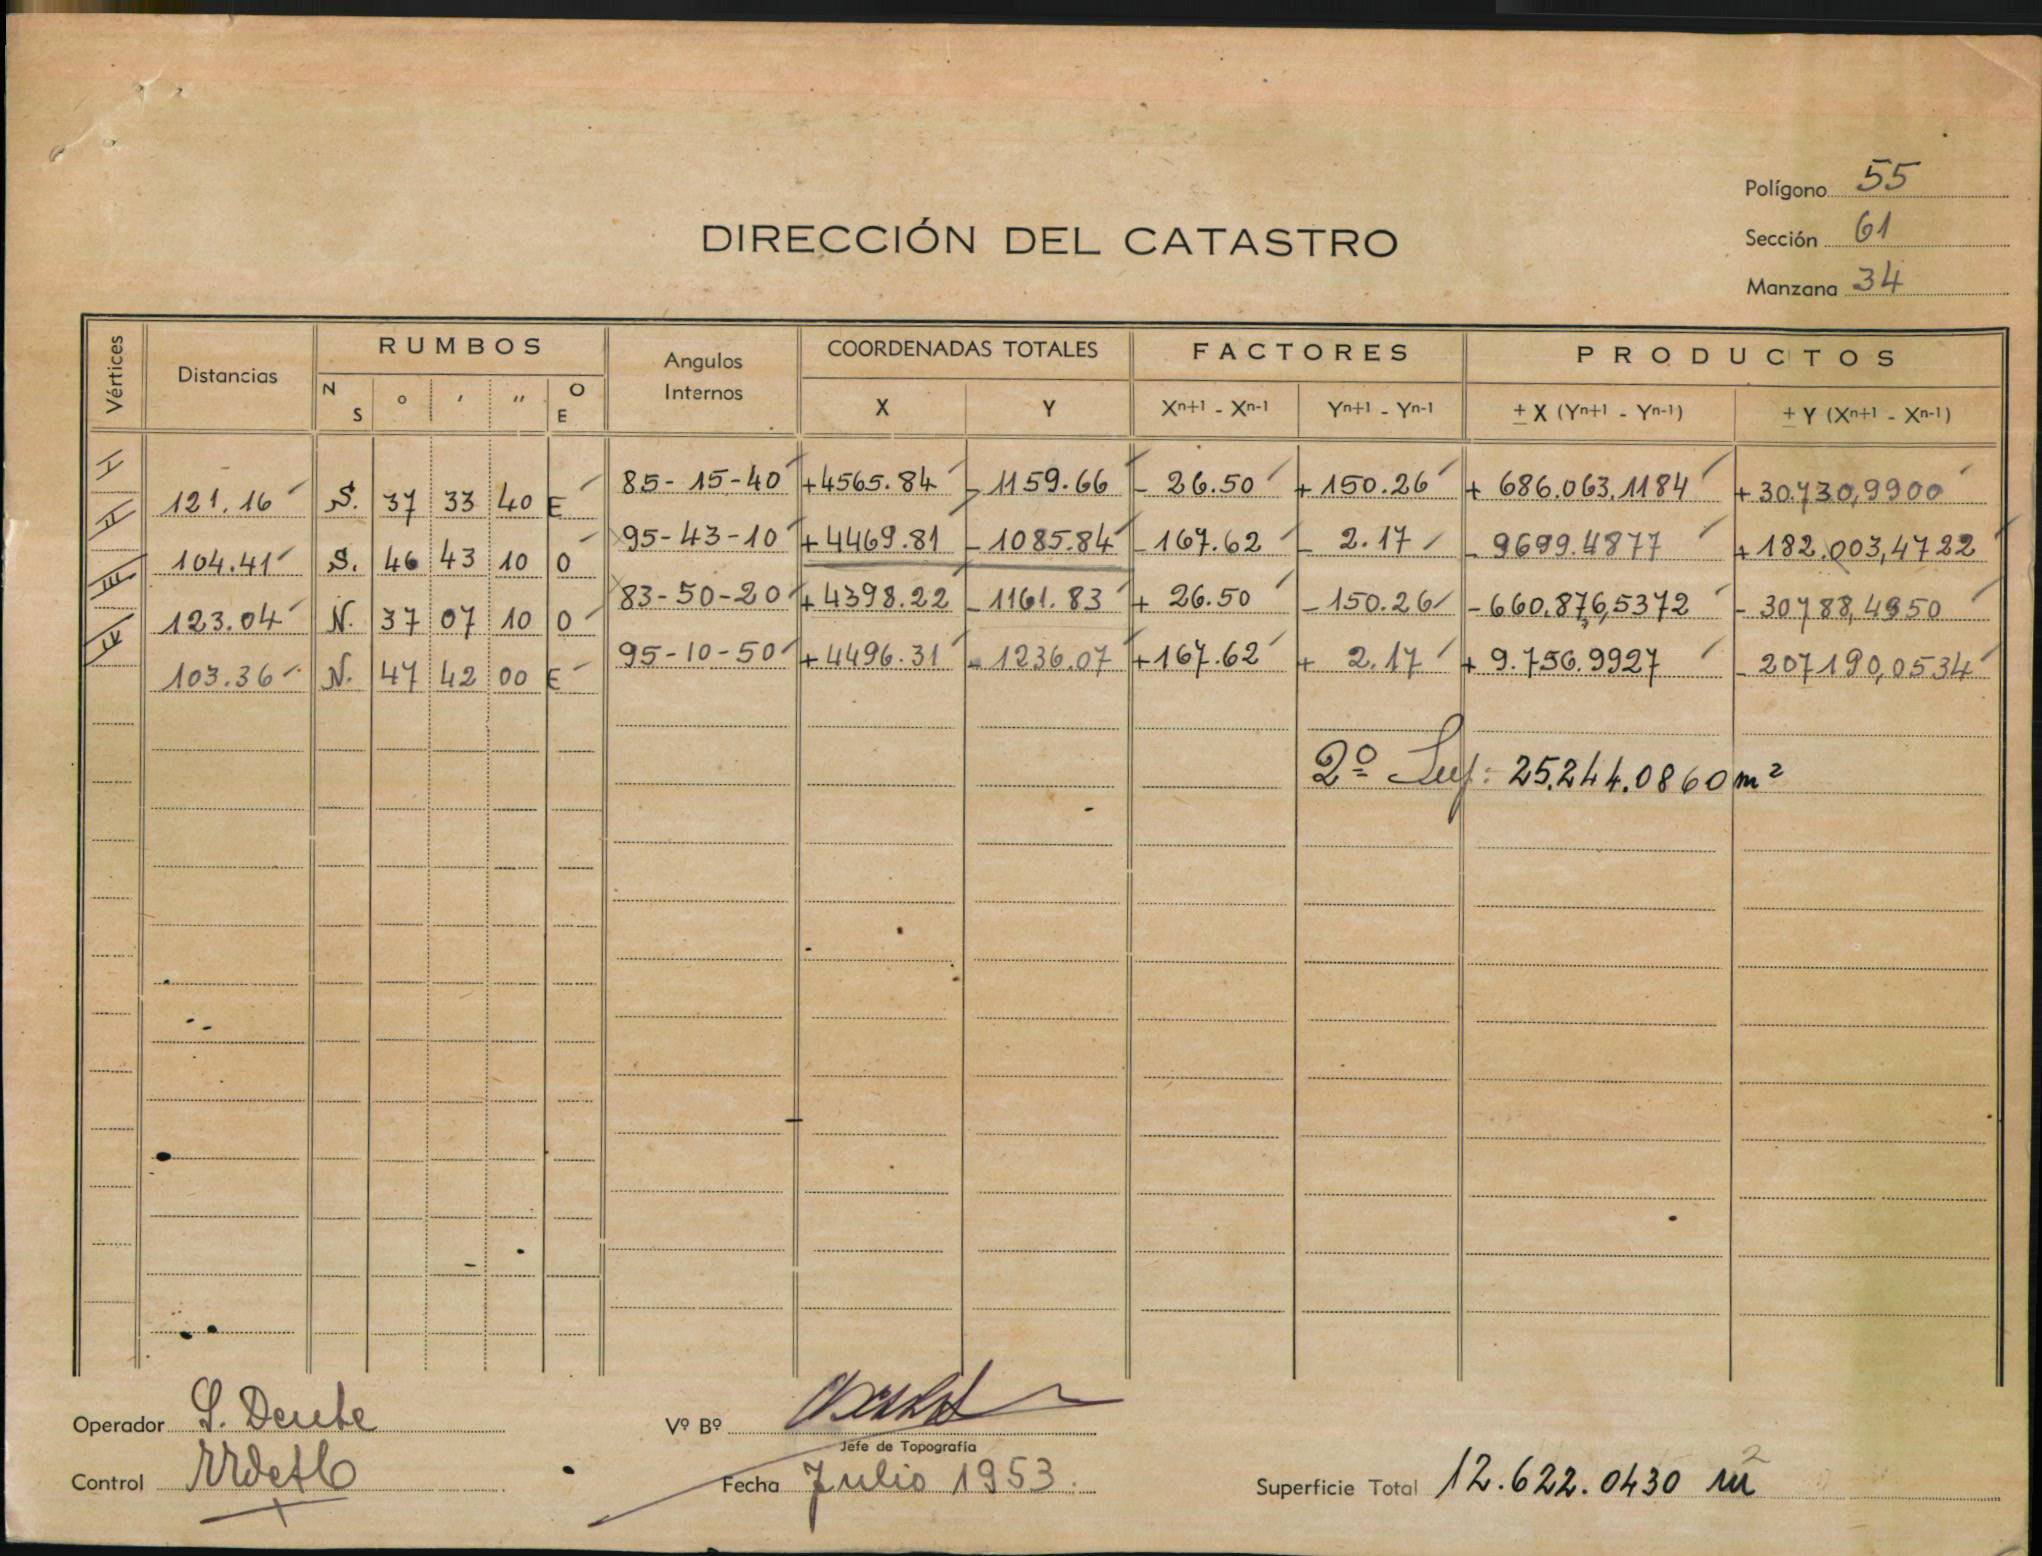 Polígono 55
DIRECCIÓN DEL CATASTRO
Sección 61
Manzana 34
Vértices Distancias RUMBOS Angulos Internos COORDENADAS TOTALES FACTORES PRODUCTOS
N S ° ' " O E X Y Xn+1 - Xn-1 Yn+1 - Yn-1 ± X (Yn+1 - Yn-1) ± Y (Xn+1 - Xn-1)
I 85-15-40 +4565.84 -1159.66 - 26.50 + 150.26 + 686.063,1184 + 30.730,9900
121.16 S. 37 33 40 E
II 95-43-10 +4469.81 -1085.84 -167.62 - 2.17 - 9699.4877 +182.003,4722
104.41 S. 46 43 10 O
III 83-50-20 +4398.22 -1161.83 + 26.50 -150.26 -660.876,5372 - 30788,4950
123.04 N. 37 07 10 O
IV 95-10-50 +4496.31 - 1236.07 +167.62 + 2.17 + 9.756.9927 - 207190,0534
103.36 N. 47 42 00 E
2º Sup: 25.244.0860 m²
Operador S. Dente Vº Bº
Jefe de Topografía
Control Fecha Julio 1953. Superficie Total 12.622.0430 m²